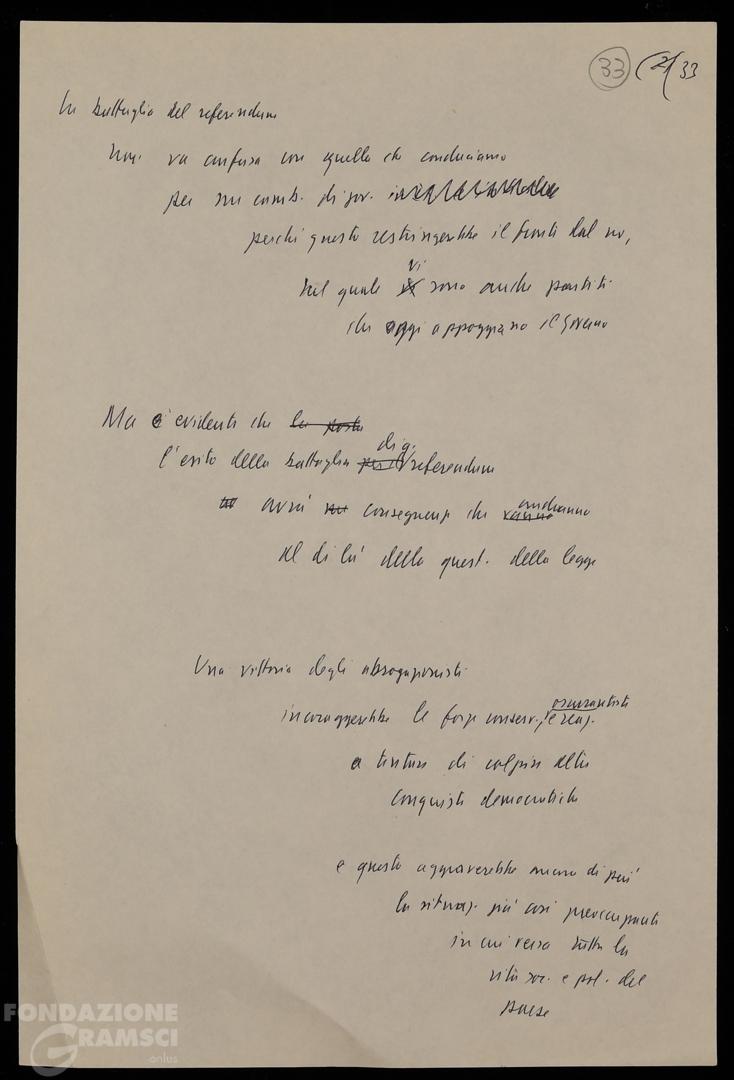 33 (2/33
La battaglia del referendum
non va confusa con quella che conduciamo
per un camb. di gov.
perché questo restringerebbe il fronte del no,
vi
nel quale sono anche partiti
che oggi appoggiano il governo
Ma è evidente che la posta
di q.
l'esito della battaglia referendum
andranno
avrà conseguenze che vanno
al di là della quest. della legge
Una vittoria degli abrogazionisti
oscurantiste
incoraggerebbe le forze conserv., e reaz.
a tentare di colpire altre
conquiste democratiche
e questo aggraverebbe ancora di più
la situaz. già così preoccupante
in cui versa tutta la
vita soc. e pol. del
paese
FONDAZIONE
GRAMSCI
onlus